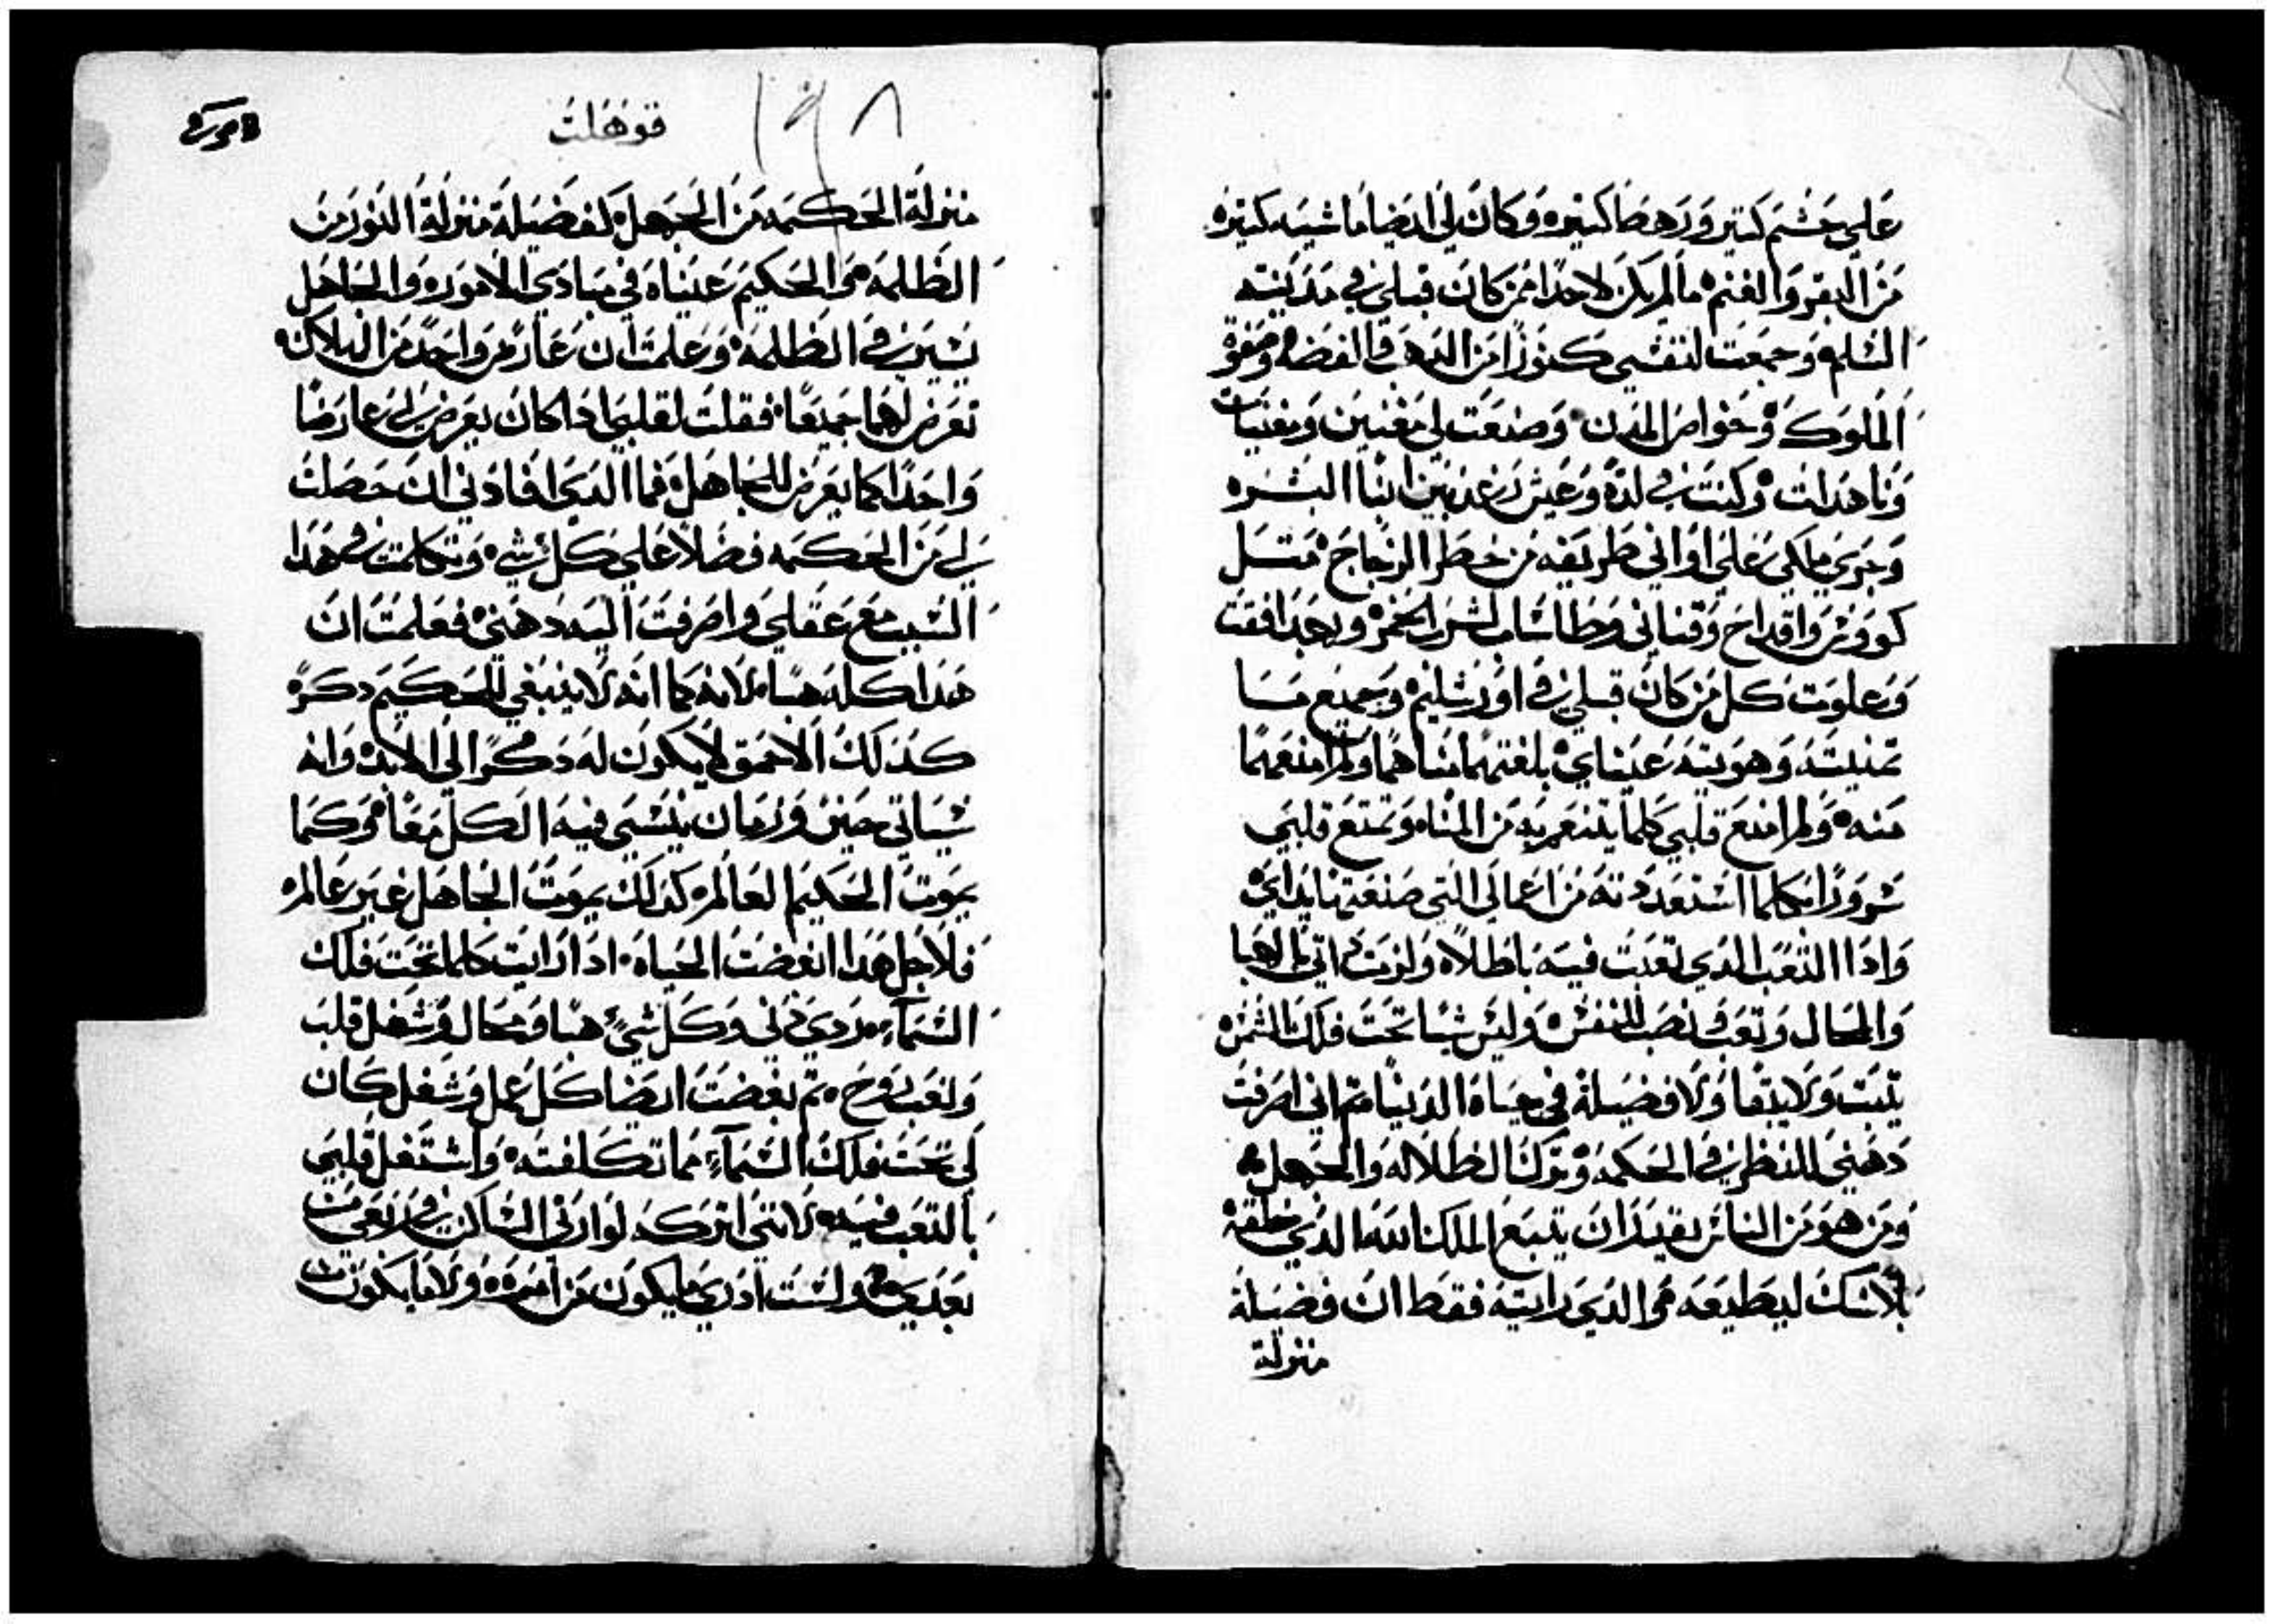 علي حشم كتير ورهطا كتيره وكان لي ايضا ماشيه كتيره
من البقر والغنم ما لم يكن لاحدا ممن كان قبلي في مدينة
السلم وجمعت لنفسي كنوزا من الدهب والفضه وصفوة
الملوك وخواص المدن وصنعت لي مغنيين ومغنيات
وناهدات وكنت في لده وعيش رغد بين ابنا البشر
وجري ملكي علي اواني طريفه من خطر الزجاج متل
كووش واقداح وقناني وطاسات لشرب الخمر وبهدا فقت
وعلوت كل من كان قبلي في اورشليم وجميع ما
تمنيته وهويته عيناي بلغتهما مناهما ولم امنعهما
منه ولم امنع قلبي كلما يتنعم به من المناه وتمتع قلبي
سرورا بكلما استعددته من اعمالي التي صنعتها يداي
وادا التعب الدي تعبت فيه باطلا ولزمت اتي بالهبا
والمحال وتعب ونصب للنفس وليس شيا تحت فلك الشمس
يتبت ولا يبقا ولا فضيلة في حياة الدنيا تم اني اصرفت
دهني للنظر في الحكمه وترك الظلاله والجهل
ومن هو من الناس يقيد ان يتبع الملك الله الدي خلقه
بلا شك ليطيعه والدي رايته فقط ان فضيلة
منزلة
قوهلت
١٩٨
منزلة الحكمه من الجهل كفضيلة منزلة النور من
الظلمه والحكيم عيناه في مبادي الامور والجاهل
يسير في الظلمه وعلمت ان عارض واحد من البلا كن
تعرض لهما جميعا فقلت لقلبي ادا كان يعرض لي عارضا
واحدا كما يعرض للجاهل فما الدي افادني ان حصلت
لي من الحكمه فضلا علي كل شي وتكلمت في هدا
السبب مع عقلي واصرفت اليه دهني فعلمت ان
هدا كله هبا لانه كما انه لا ينبغي للحكيم دكر
كدلك الاحمق لا يكون له دكرا الي الابد وانه
سياتي حين وزمان ينسي فيه الكل معا وكما
يموت الحكيم العالم كدلك يموت الجاهل غير عالم
فلاجل هدا ابغضت الحياه اد ارايت كلما تحت فلك
السماء مردي في وكل شي هبا ومحال وشغل قلب
وتعب روح تم بغضت ايضا كل عمل وشغل كان
لي تحت فلك السماء مما تكلفته واشتغل قلبي
بالتعب فيه لانني اتركه لوارتي الساكن في من
بعدي ولست ادري ما يكون من امره ولا ما يكون